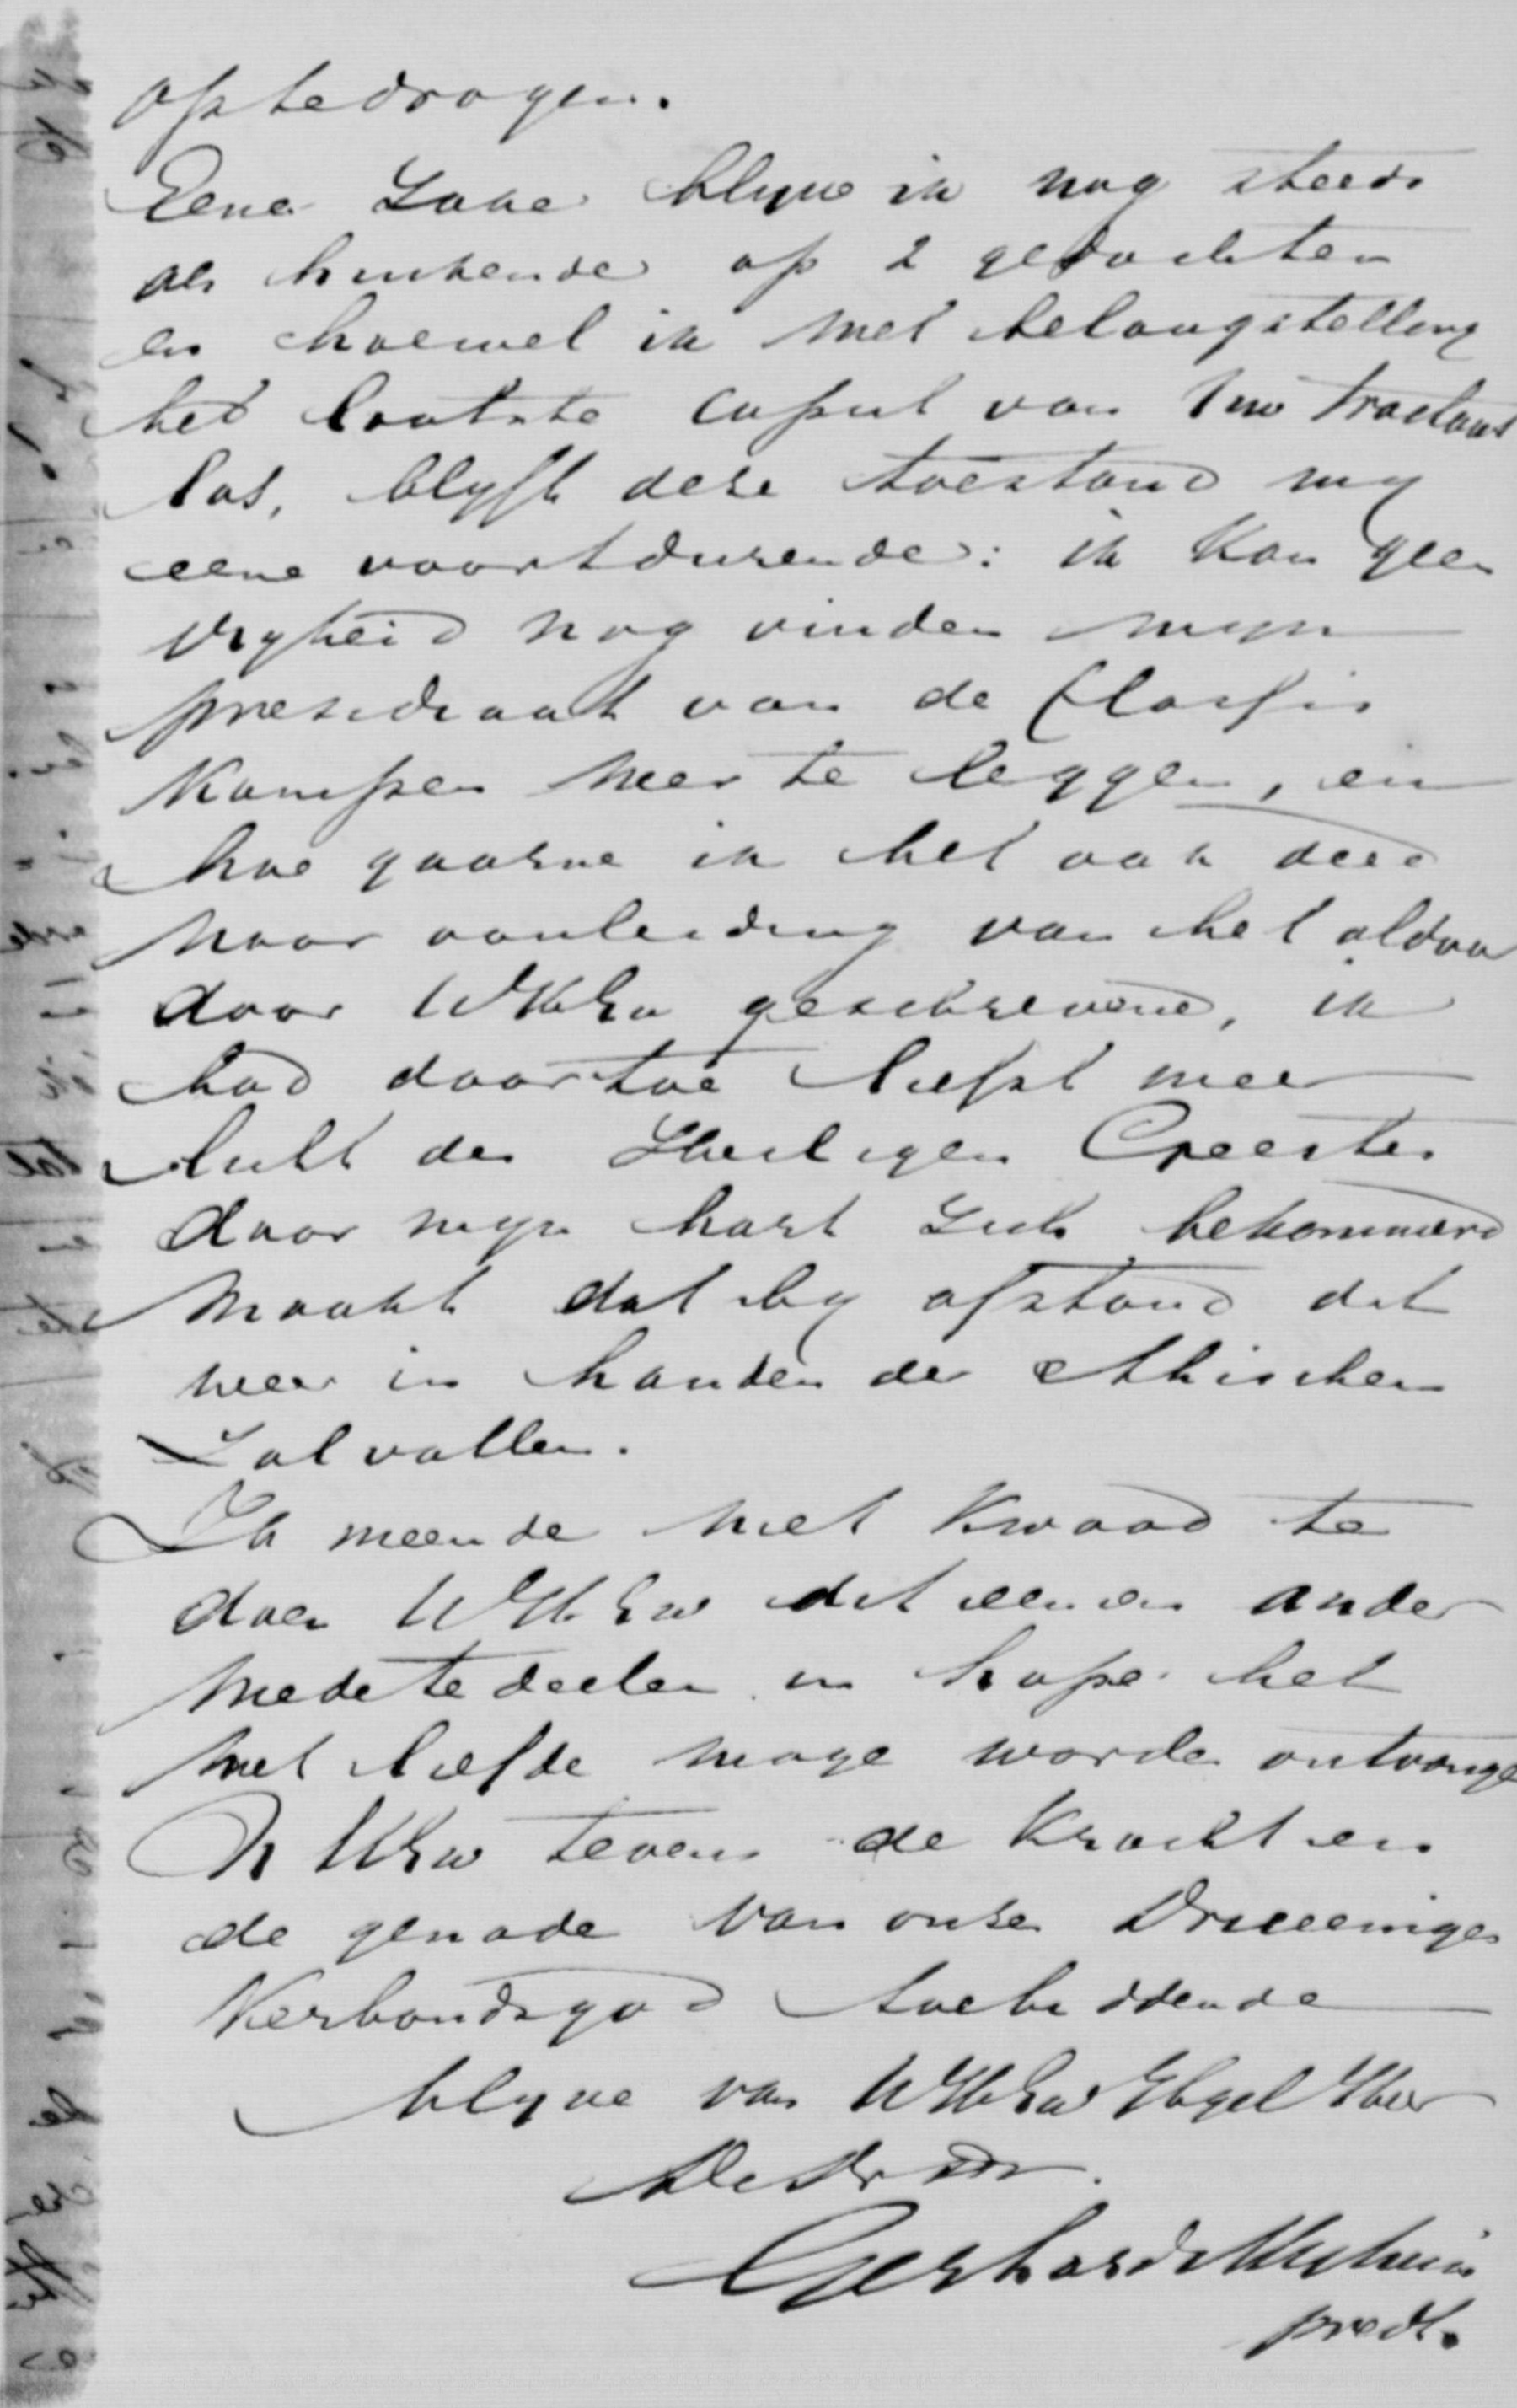 optedragen.
Eene zake blyve ik nog steeds
als hinkende op 2 gedachten
en hoewel ik met belangstelling
het laatste caput van Uw tractaat
las, blyft deze toestand my
eene voortdurende: ik kan geen
vryheid nog vinden myn
presidiaat van de Classis
Kampen neer te leggen, en
hoe gaarne ik het ook deed
naar aanleiding van het aldaar
door UWHEw geschrevene, ik
had daartoe liefst meer
licht des Heiligen Geestes
daar myn hart zich bekommerd
maakt dat by afstand dit
weer in handen der ethischen
zal vallen.
Ik meende niet kwaad te
doen UWHEw dit een en ander
mede te deelen in hope het
met liefde moge worden ontvangen
UHEw tevens de kracht en
de genade van onzen Drieeenigen
Verbondsgod toebiddende
blyve van UWHEw Hgel Heer
de dw dr.
Gerhard
predt.